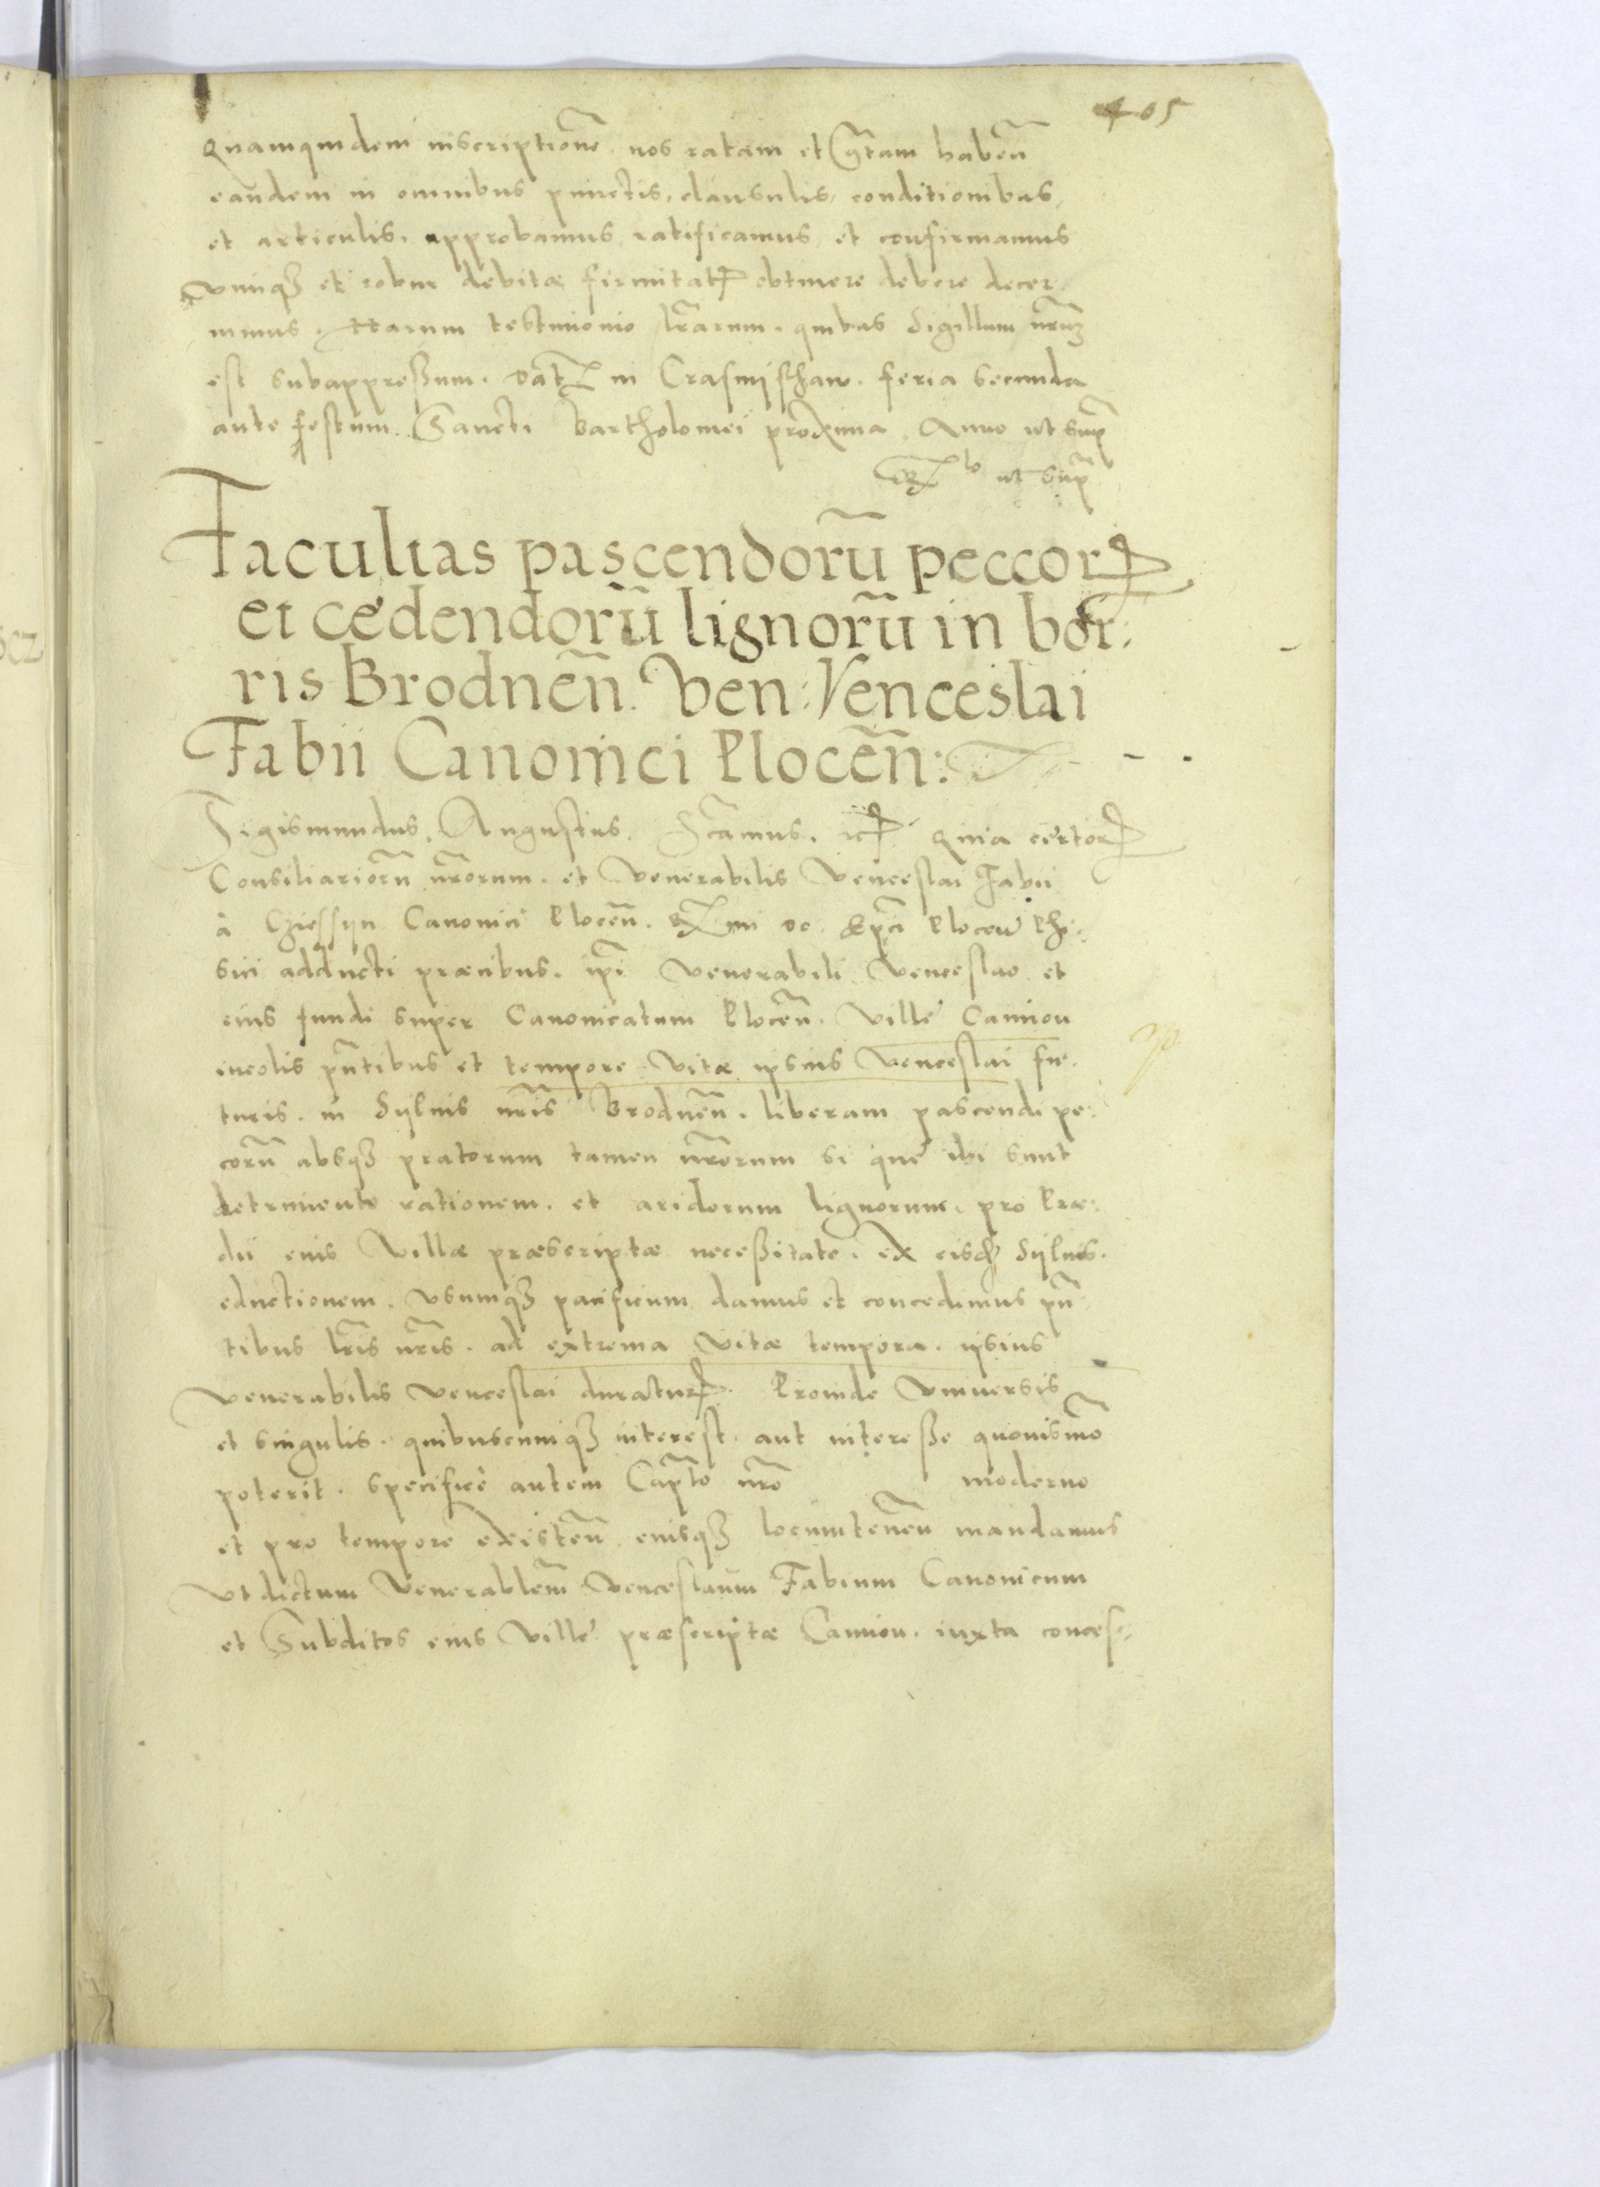 405
Quamquidem inscriptionē nos ratam et gratam habeñ
eandem in omnibus punctis, clausulis, conditionibus,
et articulis, approbamus ratificamus et confirmamus
vimq3 et robur debitae firmitatis obtinere debere decer
nimus. Harum testimonio lrarum, quibus Sigillum nrum
est subappressum. Dat in Crasnijsthaw. feria secunda
ante festum Sancti Bartholomei proxima, Anno ut supra
ut supra
Facultas pascendorū peccorꝝ
et cedendorū lignorū in bor:
ris Brodneñ. Ven: Venceslai
Fabii Canonici Ploceñ:
Sigismundus Augustus. Scamus. Quia certorꝝ
Consiliariorū nrorum, et Venerabilis Venceslai Fabii
à Canonici Ploceñ. Ploceñ Phi:
sici adducti praecibus, ipi venerabili Venceslao et
eius fundi super Canonicatum Ploceñ. Villę Camion
incolis pntibus et tempore vitae ipsius Venceslai fu
turis, in Sijluis nris Brodneñ, liberam pascendi pe:
corū absq3 pratorum tamen nrorum si quę ibi sunt
detrimento rationem, et aridorum lignorum, pro Prae:
dii eius Villae praescriptae necessitate, ex eisdē Sijluis.
eductionem, vsumq3 pacificum damus et concedimus pñ
tibus lris nris, ad extrema vitae tempora, ipsius
venerabilis Venceslai duraturꝝ. Proinde vniuersis
et singulis, quibuscumq3 interest, aut interesse quouismō
poterit, specificè autem Capto nro moderno
et pro tempore existeñ, eiusq3 locumteneñ mandamus
vt dictum Venerablem Venceslaum Fabium Canonicum
et Subditos eius Villę praescriptae Camion, iuxta conces-